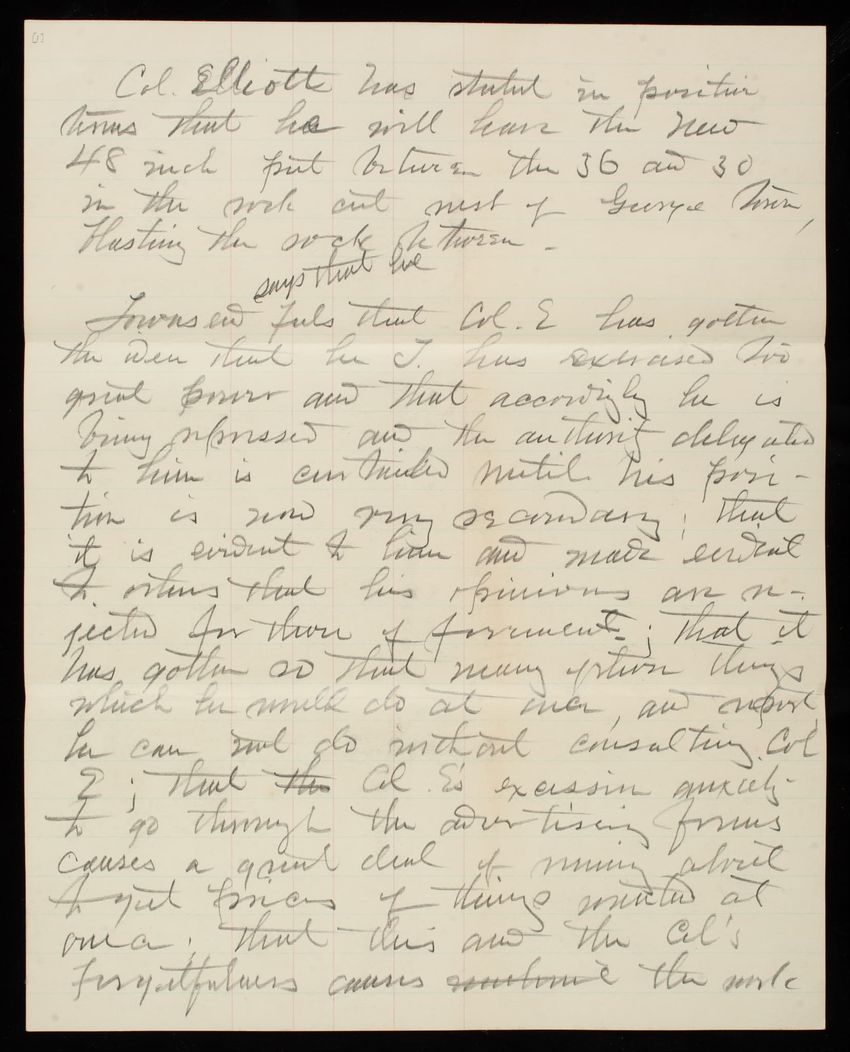 Col. Elliott has stated in positive
terms that he will leave the new
48 inch just between the 36 and 30
in the rock cut west of George town,
blasting the rock between -
says that he
Townsend feels that Col. E has gotten
the idea that he T. has exercised too
great power and that accordingly he is
being repressed and the authority delegated
to him is curtailed until his posi-
tion is now very secondary; that
it is evident to him and made evident
to others that his opinions are re-
jected for those of foremen; that it
has gotten so that many of those things
which he would do at once, and report,
he can not do without consulting Col
E; that the Col. E's excessive anxiety
to go through the advertising forms
causes a great deal of running about
to get prices of things wanted at
once; that this and the Col's
forgetfulness causes the work